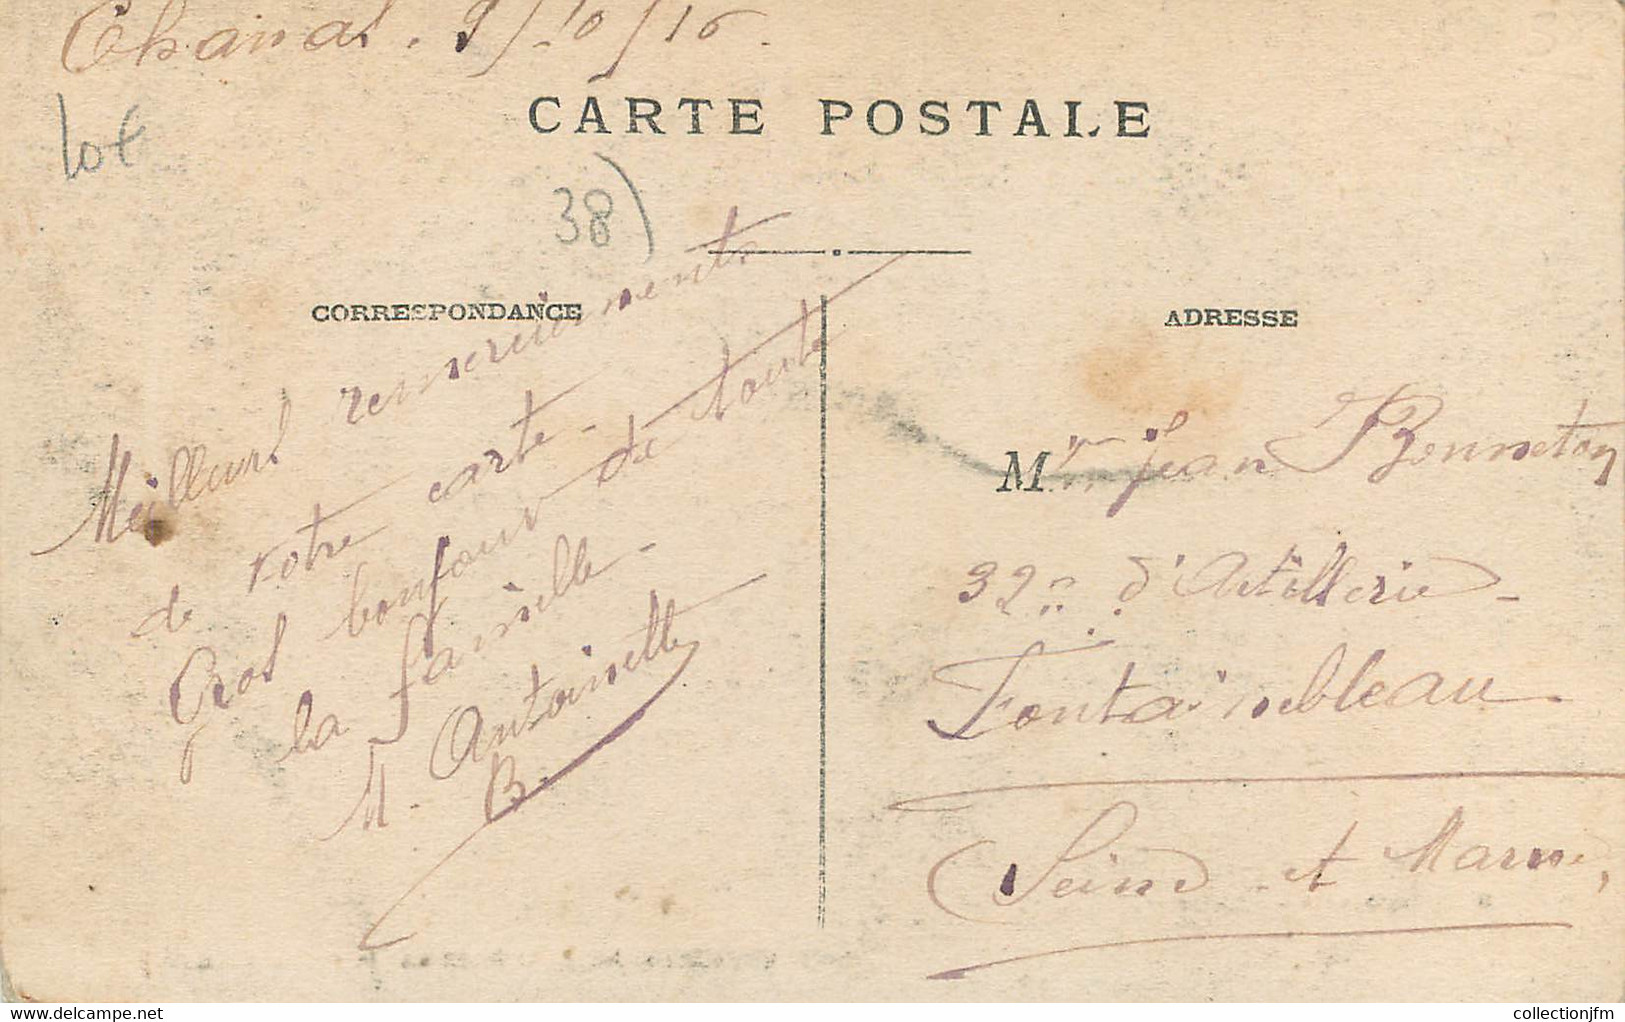 Chanas. 9/10/16.
CARTE POSTALE
10€
38)
CORRESPONDANCE
Meilleurs remerciements
de votre carte -
Gros bonjour de toute
la famille -
M. Antoinette
B.
ADRESSE
Mr Jean Bonneton
32e d'Artillerie -
Fontainebleau
Seine et Marne,
www.delcampe.net
collectionjfm